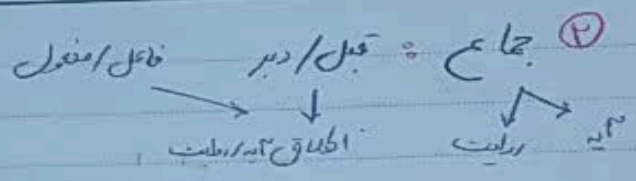 ② جماع : قبل / دبر فاعل / مفعول
آیه روایت اطلاق آیه / روایت